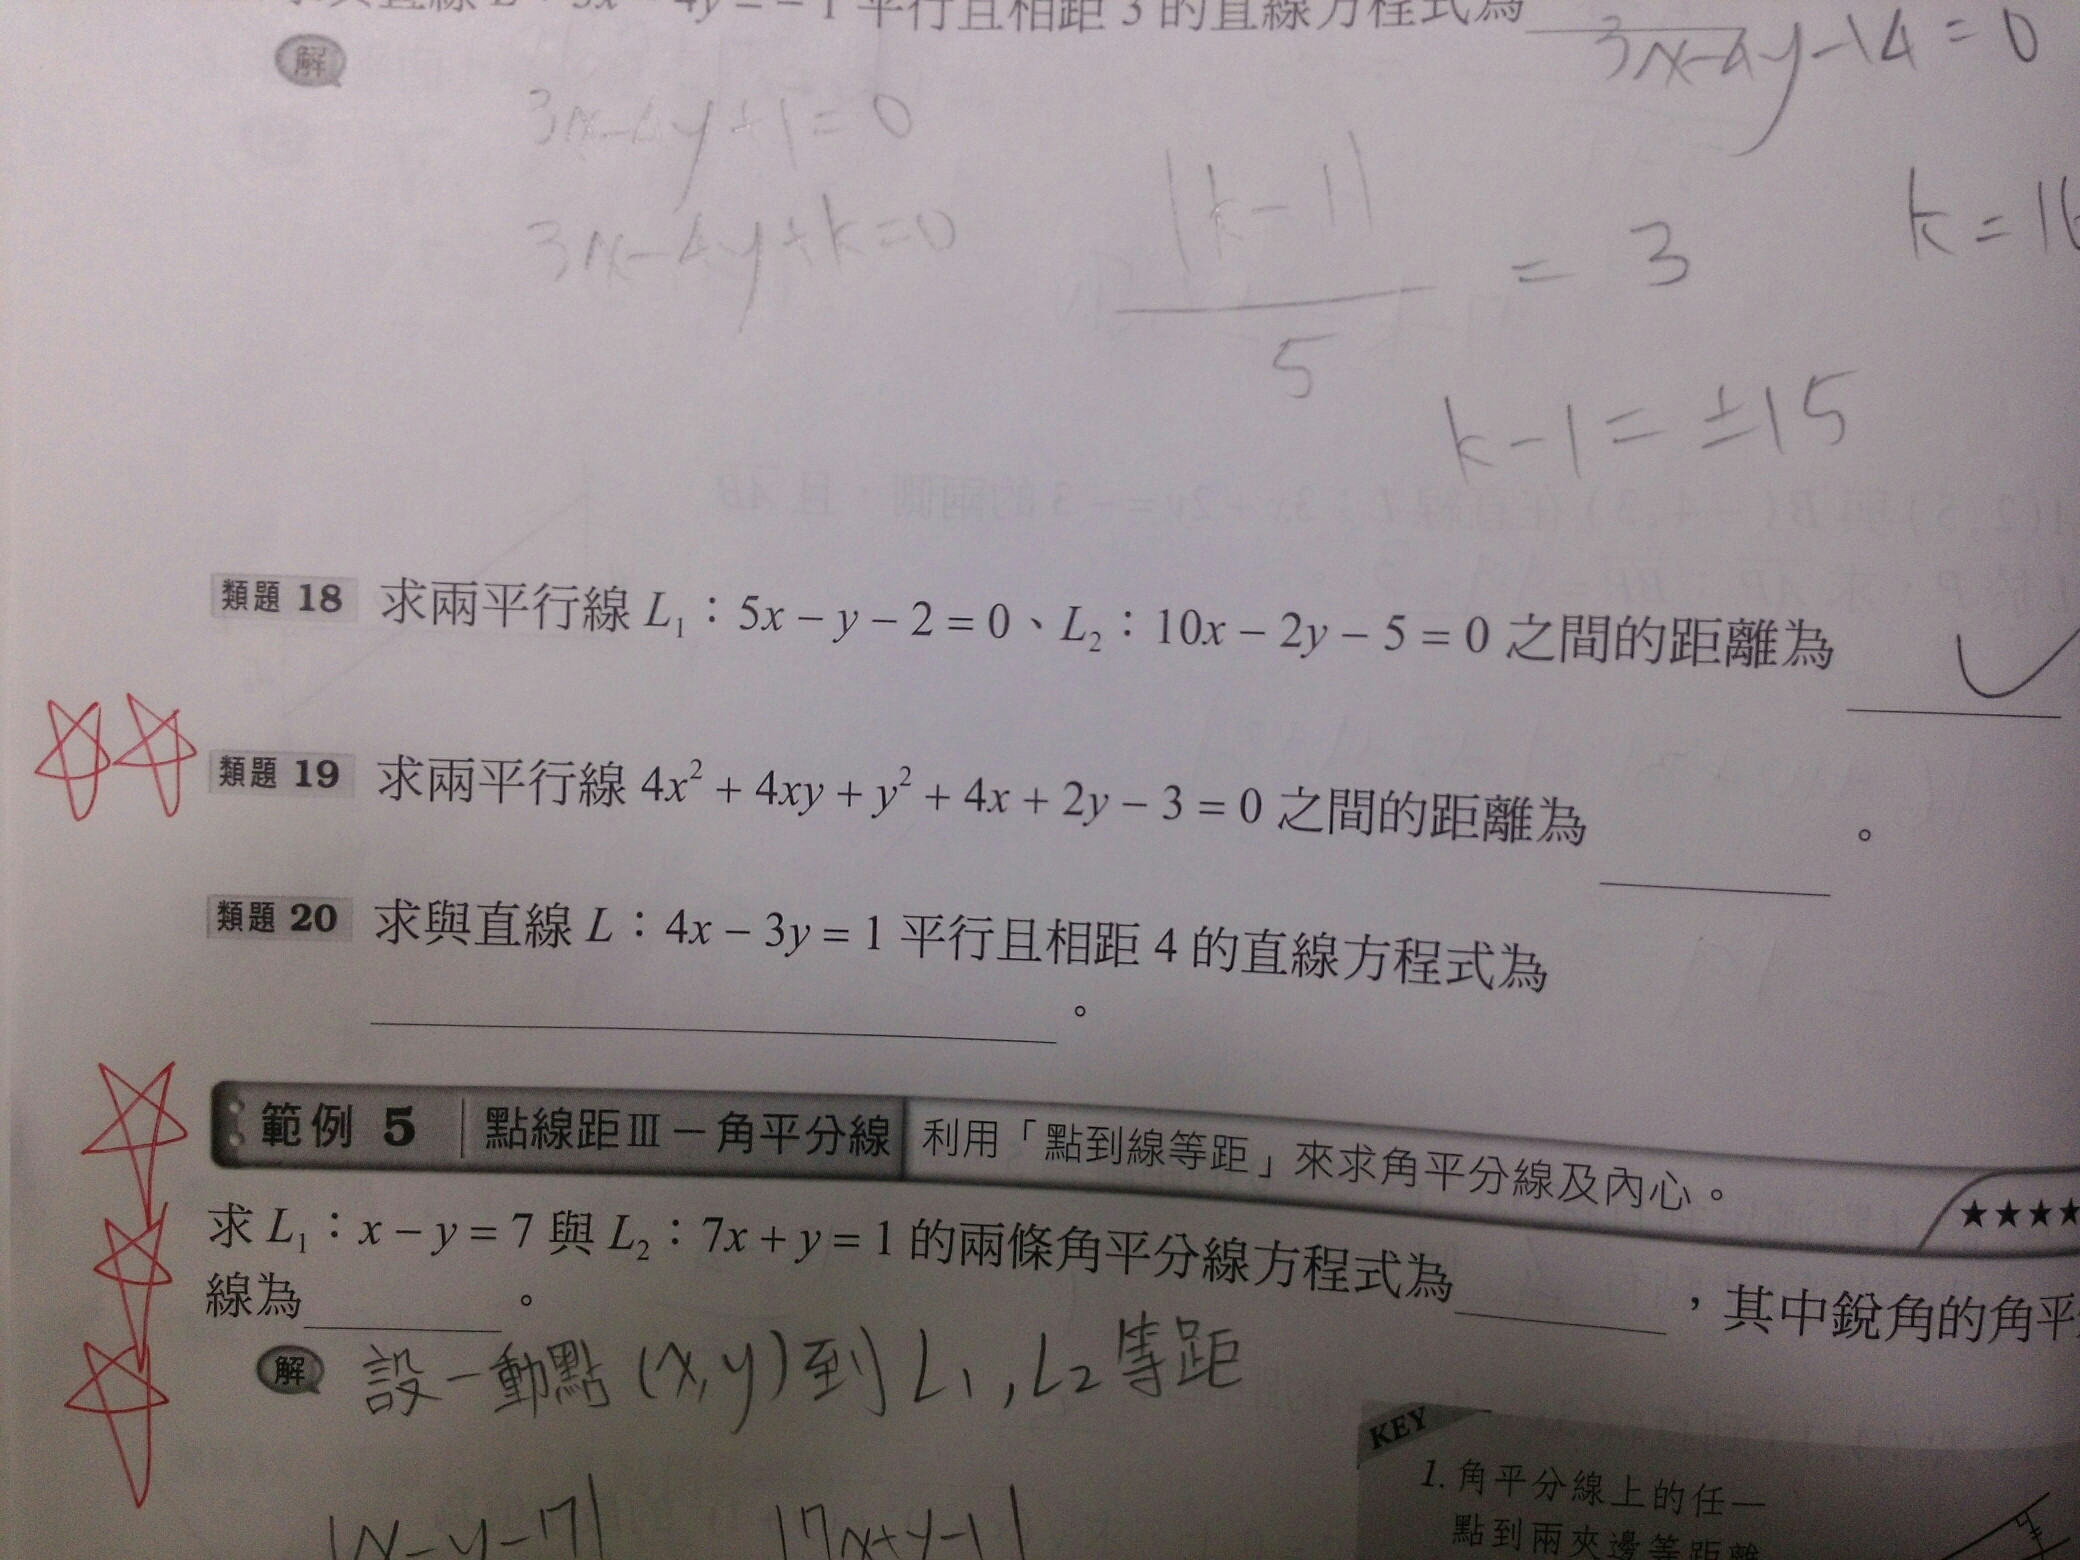 平行且相距 3 的直線方程式為
3x-4y-14=0
解
3x-4y+1=0
3x-4y+k=0
|k-1|
5
= 3
k=16
k-1=±15
類題 18 求兩平行線 L₁：5x－y－2＝0、L₂：10x－2y－5＝0 之間的距離為
類題 19 求兩平行線 4x²＋4xy＋y²＋4x＋2y－3＝0 之間的距離為 。
類題 20 求與直線 L：4x－3y＝1 平行且相距 4 的直線方程式為
。
範例 5 點線距Ⅲ－角平分線 利用「點到線等距」來求角平分線及內心。 ★★★★
求 L₁：x－y＝7 與 L₂：7x＋y＝1 的兩條角平分線方程式為 ，其中銳角的角平
線為 。
解 設一動點 (x,y) 到 L₁, L₂ 等距
KEY
1. 角平分線上的任一
點到兩夾邊等距離
|x-y-7| |7x+y-1|